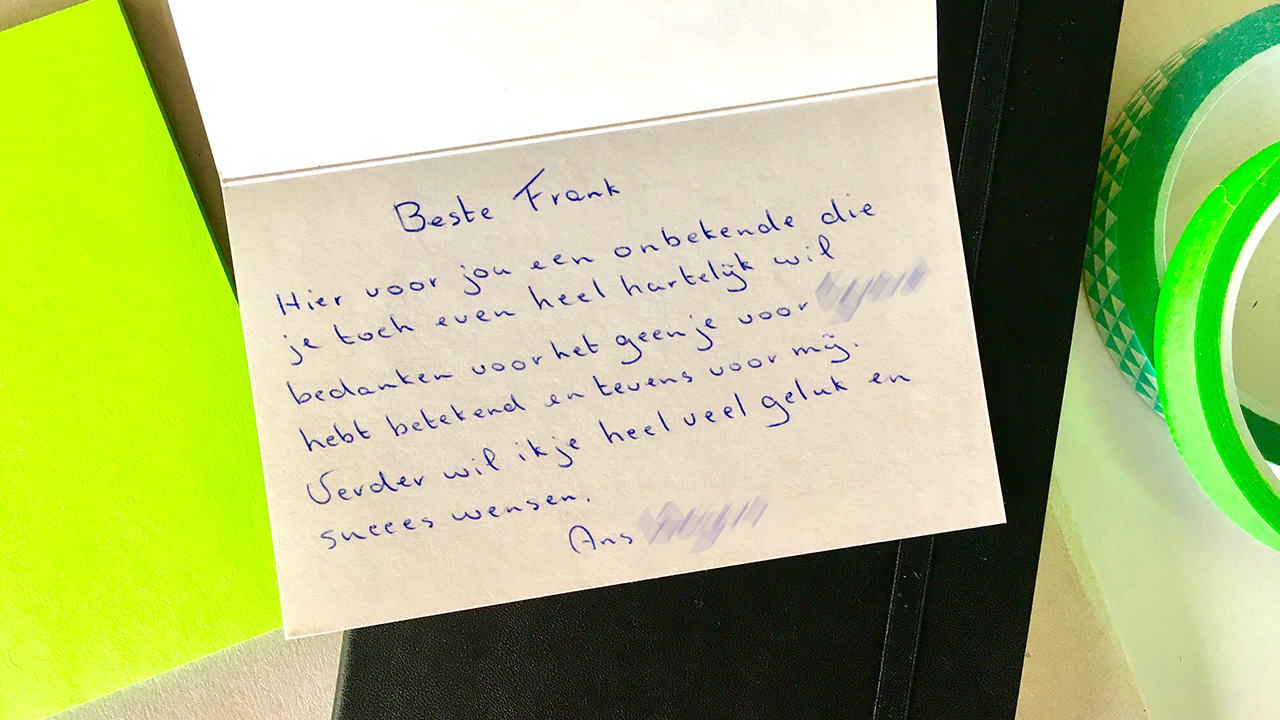 Beste Frank
Hier voor jou een onbekende die
je toch even heel hartelijk wil
bedanken voor het geen je voor
hebt betekend en tevens voor mij.
Verder wil ik je heel veel geluk en
succes wensen.
Ans